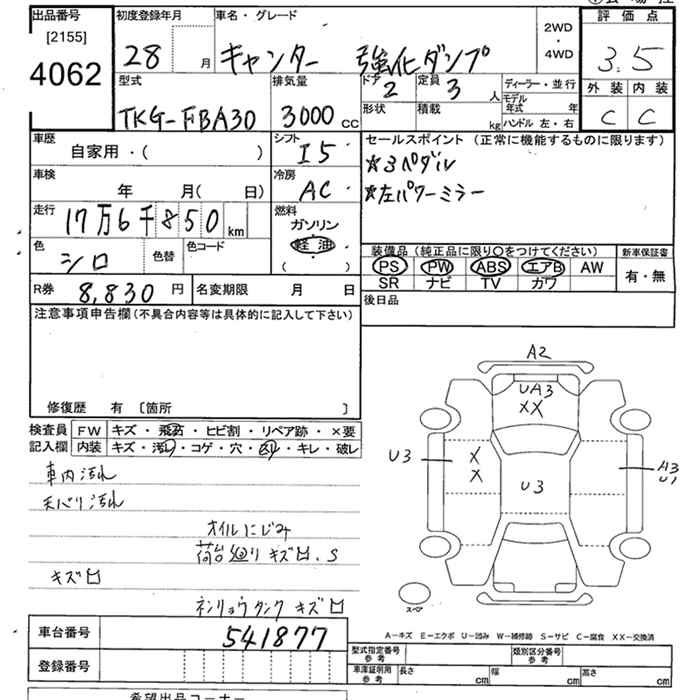 出品番号
[2155]
4062
初度登録年月
28 月
車名・グレード
キャンター 強化ダンプ
2WD
・
4WD
評価点
3.5
外装 内装
C C
型式
TKG-FBA30
排気量
3000 CC
ドア
2
定員
3 人
形状
積載
kg
ディーラー・並行
モデル年式 年
ハンドル 左・右
車歴
自家用・( )
シフト
I5
セールスポイント (正常に機能するものに限ります)
☆3ペダル
☆左パワーミラー
車検
年 月( 日)
冷房
AC
走行
17万6千850 km
燃料
ガソリン
軽油
( )
色
シロ
色替
色コード
装備品 (純正品に限り○をつけてください)
PS PW ABS エアB AW
SR ナビ TV カワ
新車保証書
有・無
R券
8,830 円
名変期限 月 日
後日品
注意事項申告欄(不具合内容等は具体的に記入して下さい)
修復歴 有 〔箇所 〕
検査員
記入欄
FW キズ・飛石・ヒビ割・リペア跡・×要
内装 キズ・汚れ・コゲ・穴・凹・キレ・破レ
車内汚れ
天バリ汚れ
オイルにじみ
荷台廻りキズ凹.S
キズ凹
ネンリョウタンクキズ凹
A2
UA3
XX
U3
X
X
U3
A3
U1
スペア
A-キズ E-エクボ U-凹み W-補修跡 S-サビ C-腐食 XX-交換済
車台番号
541877
登録番号
型式指定番号
参考
類別区分番号
参考
車庫証明用
参考
長さ cm
幅 cm
高さ cm
希望出品コーナー